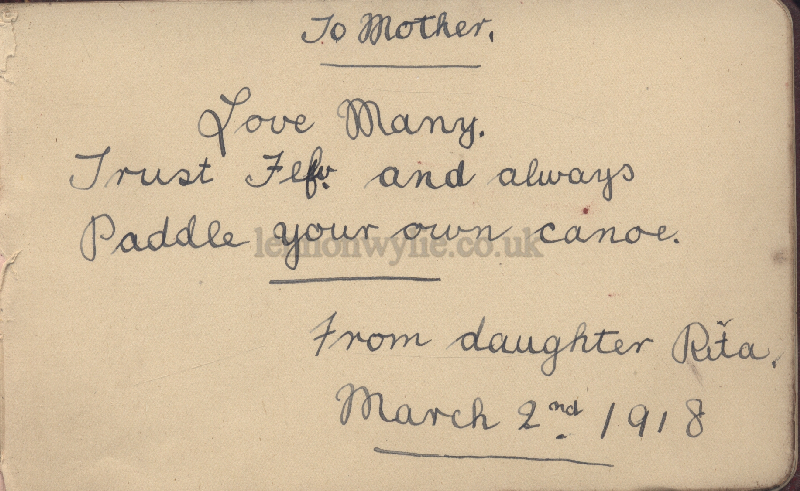 To Mother.
Love Many.
Trust Few. and always
Paddle your own canoe.
lennonwylie.co.uk
From daughter Rita.
March 2nd. 1918